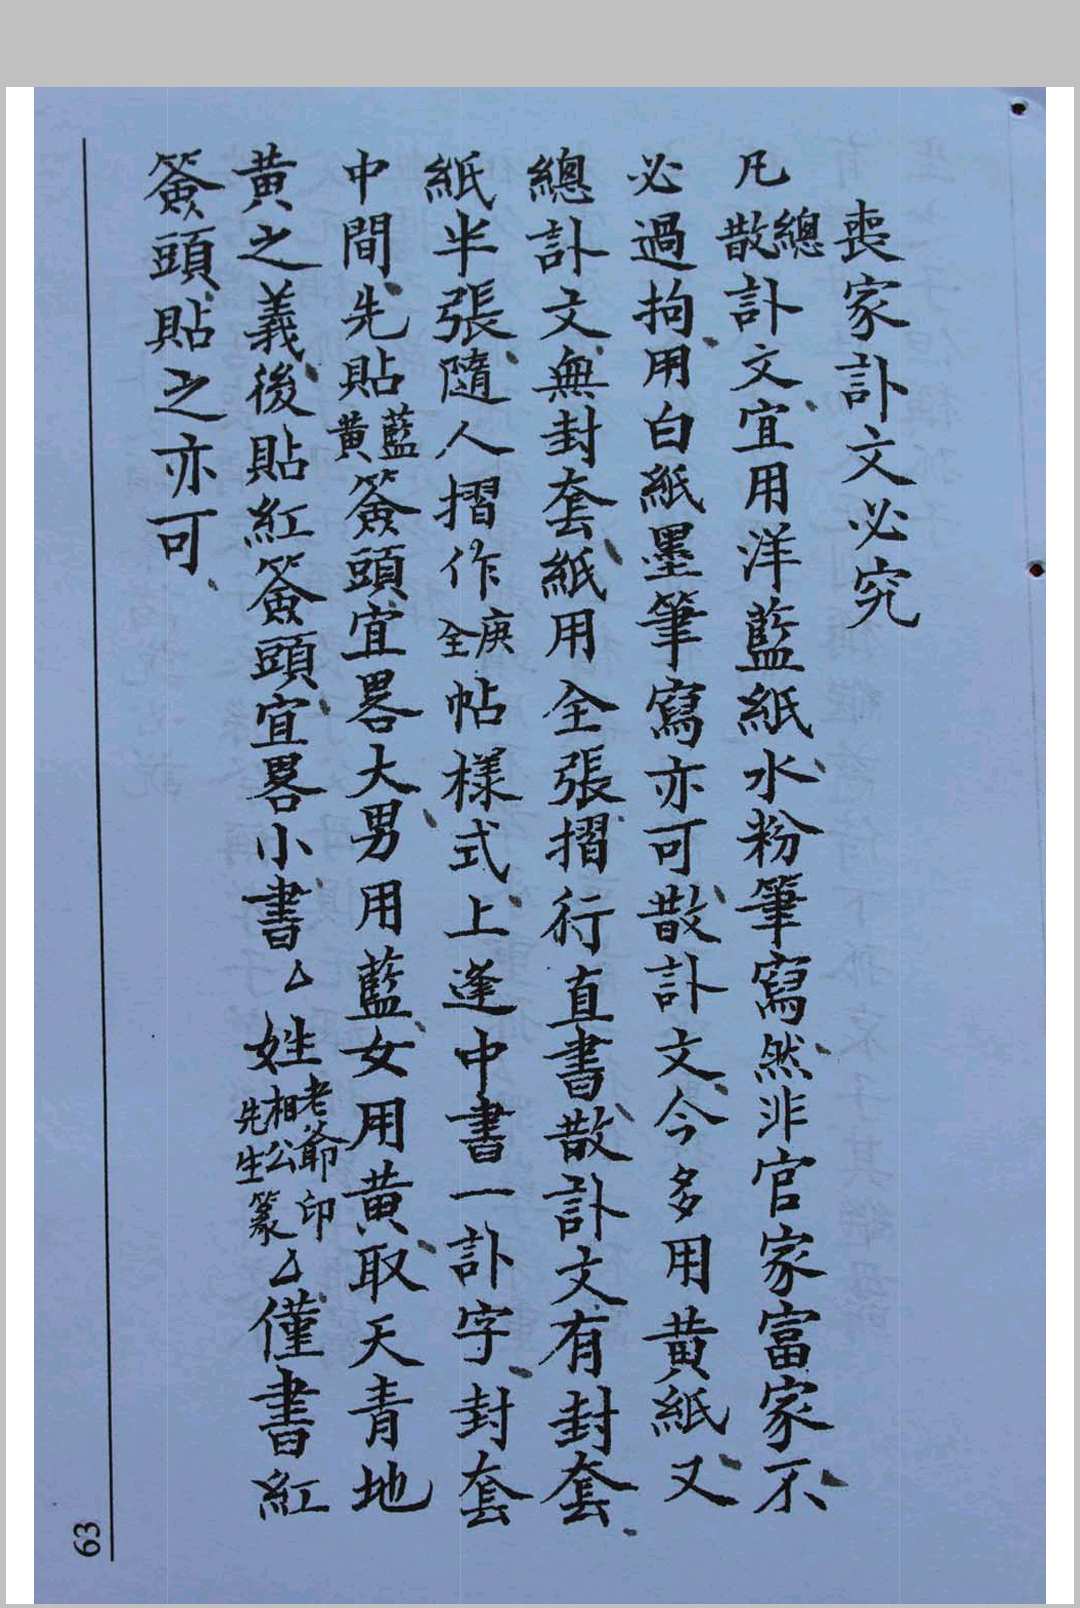 喪家訃文必究
凡總散訃文宜用洋藍紙水粉筆寫然非官家富家不
必過拘用白紙墨筆寫亦可散訃文今多用黃紙又
總訃文無封套紙用全張摺行直書散訃文有封套
紙半張隨人摺作庚全帖樣式上逢中書一訃字封套
中間先貼藍黃簽頭宜畧大男用藍女用黃取天青地
黃之義後貼紅簽頭宜畧小書厶姓老爺相公先生印篆厶僅書紅
簽頭貼之亦可
63